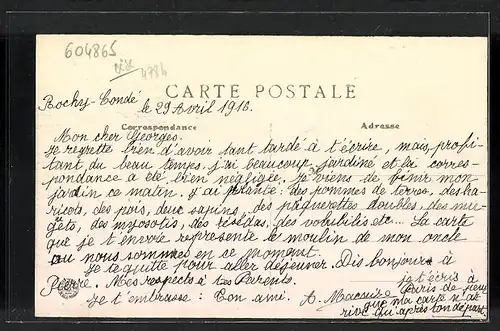 604865
Oise
4784
CARTE POSTALE
Rochy-Condé
le 29 Avril 1916.
Correspondance
Adresse
Mon cher Georges.
Je regrette bien d'avoir tant tardé à t'écrire, mais, profi-
tant du beau temps, j'ai beaucoup jardiné et la corres-
pondance a été bien négligée. Je viens de finir mon
jardin ce matin. J'ai planté: des pommes de terres, des ha-
ricots, des pois, deux sapins, des paquerettes doubles, des mu-
gets, des myosotis, des résédas, des volubilis etc.... La carte
que je t'envoie représente le moulin de mon oncle
où nous sommes en ce moment.
Je te quitte pour aller déjeuner. Dis bonjour à
Pierre. Mes respects à tes Parents.
Je t'embrasse: Ton ami. A.
je t'écris à
Paris de peur
que ma carte n'ar-
rive qu'après ton départ.